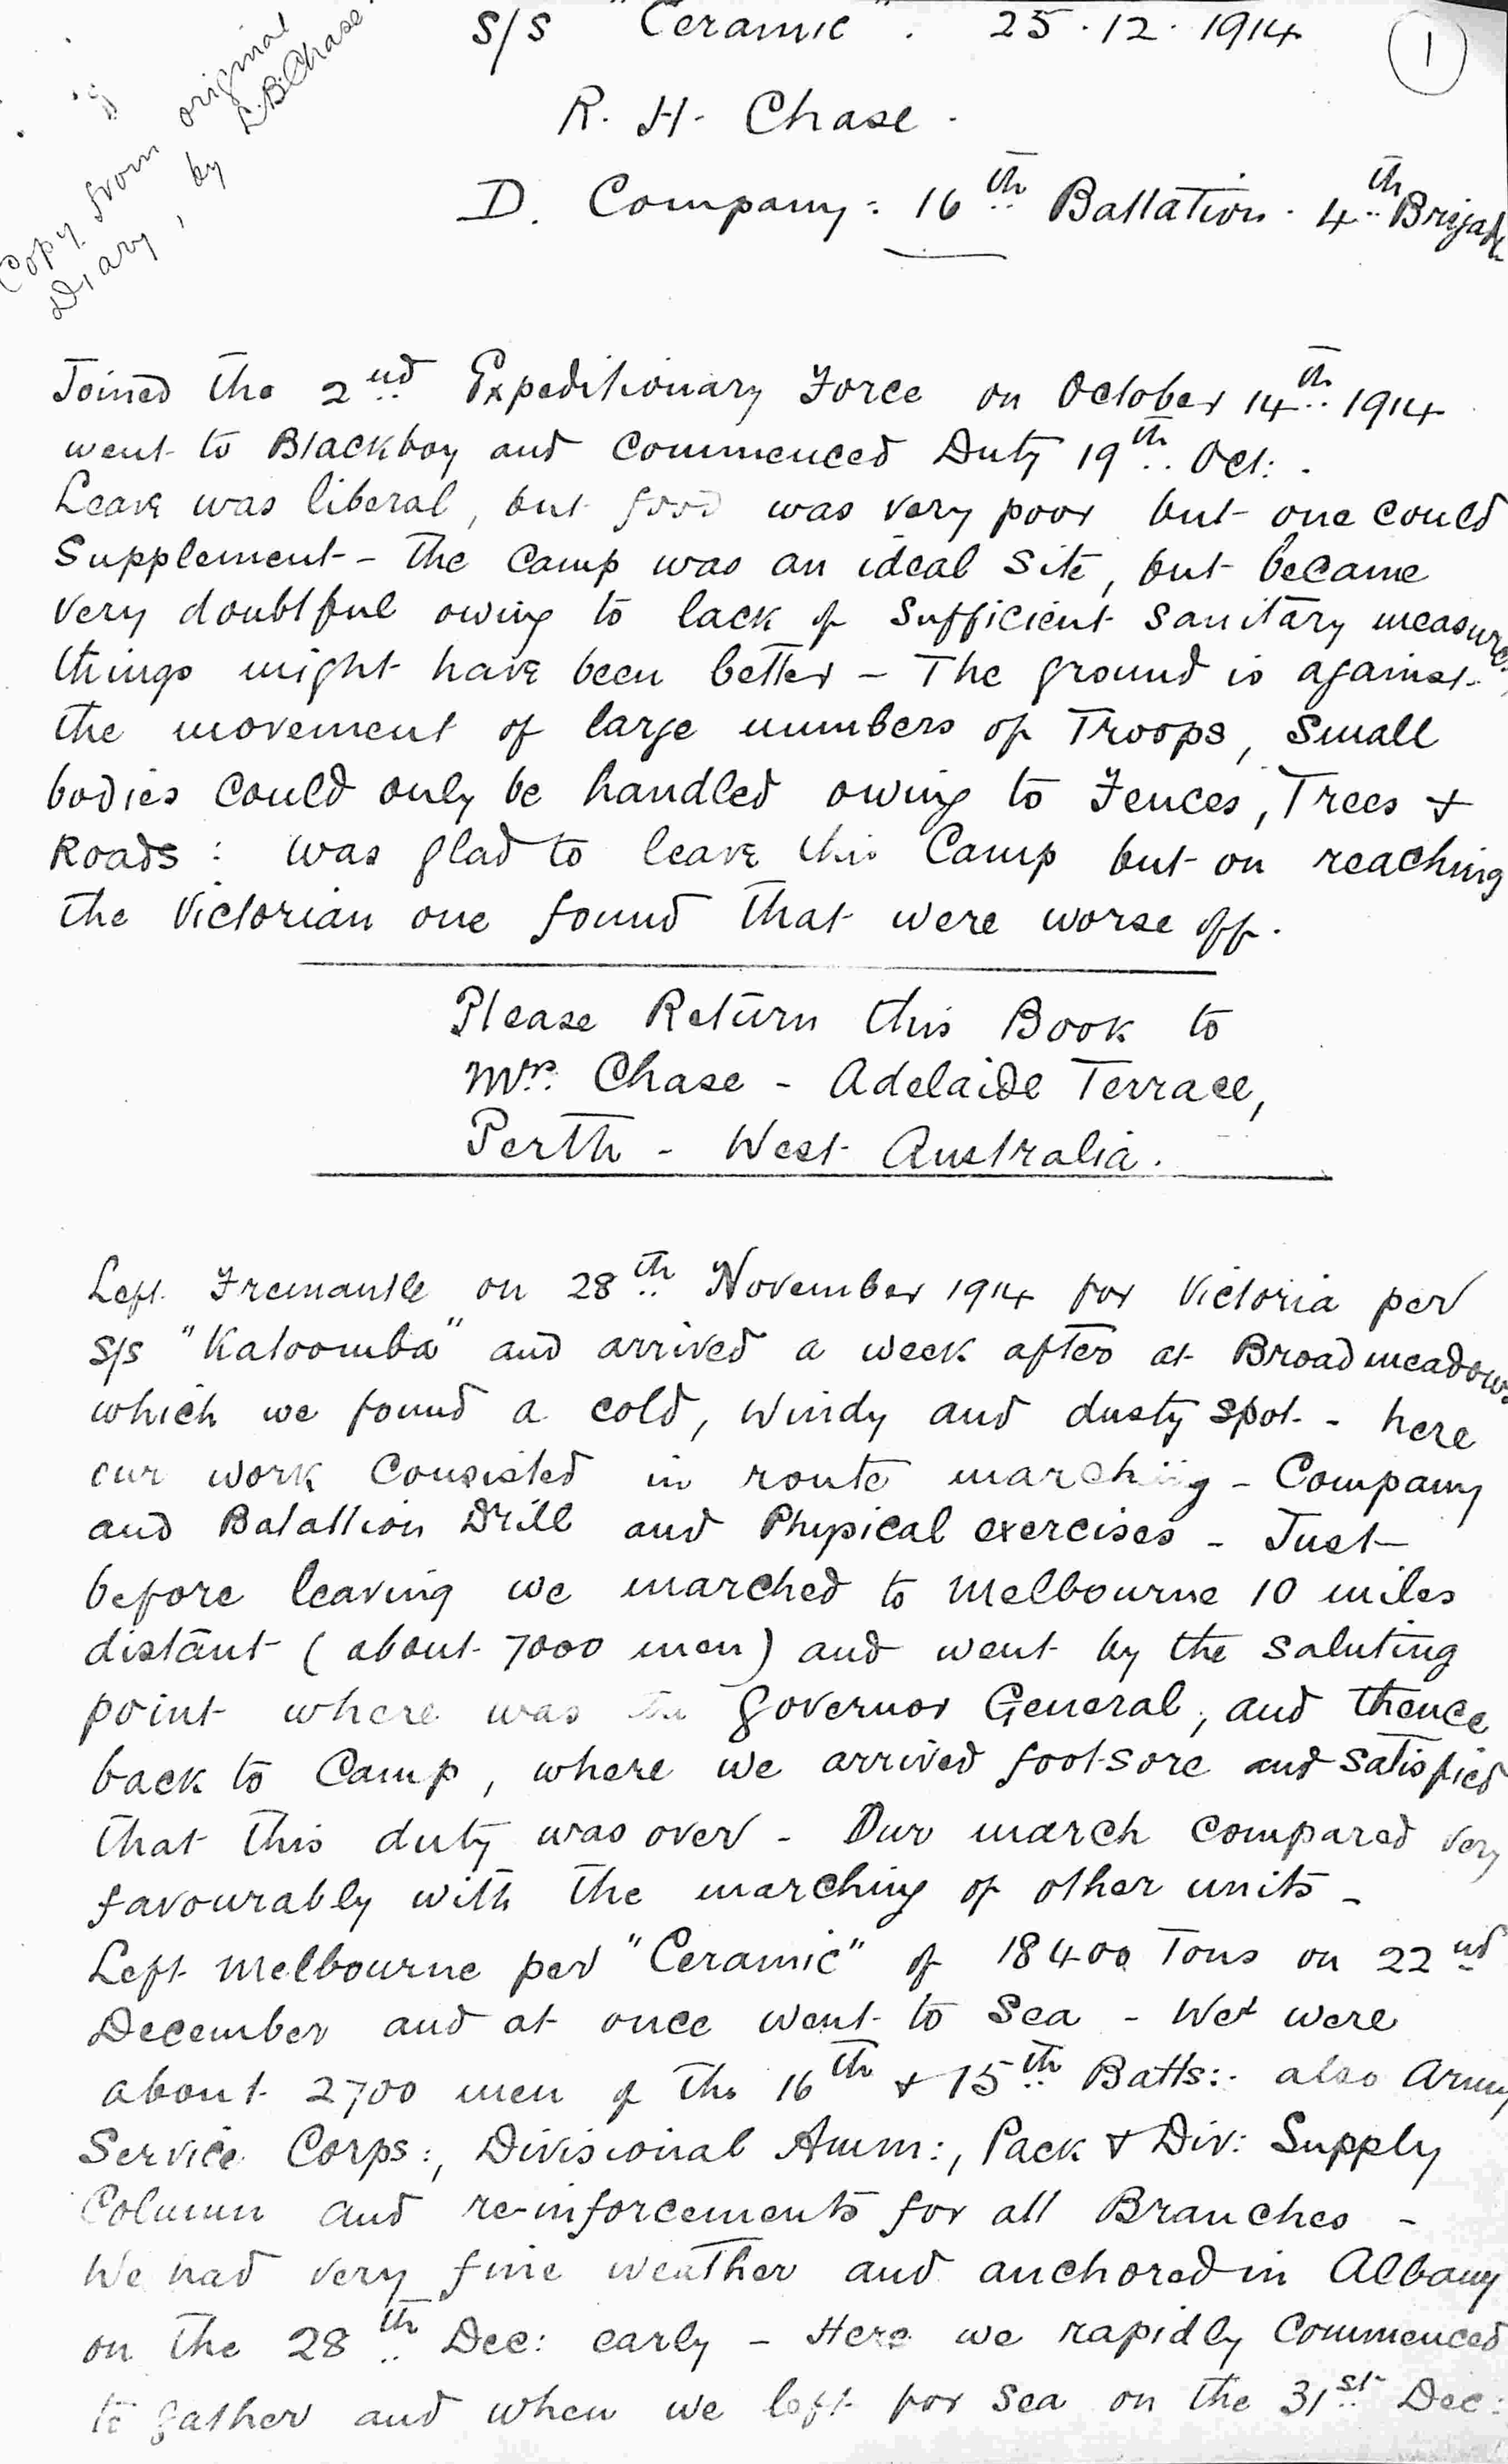 S/S "Ceramic". 25.12.1914
1
Copy from original
Diary, by L.B. Chase
R. H. Chase.
D. Company: 16th Battation. 4th Brigade
Joined the 2nd Expeditionary Force on October 14th 1914
went to Blackboy and commenced Duty 19th Oct:.
Leave was liberal, but food was very poor but one could
Supplement - The Camp was an ideal Site, but became
very doubtful owing to lack of Sufficient Sanitary measures
things might have been better - The ground is against
the movement of large numbers of Troops, Small
bodies could only be handled owing to Fences, Trees &
Roads: was glad to leave this Camp but on reaching
the Victorian one found that were worse off.
Please Return this Book to
Mrs: Chase - Adelaide Terrace,
Perth - West Australia.
Left Fremantle on 28th November 1914 for Victoria per
S/S "Katoomba" and arrived a week after at Broadmeadows
which we found a cold, windy and dusty spot - here
our work Consisted in route marching - Company
and Batallion Drill and Physical exercises - Just
before leaving we marched to Melbourne 10 miles
distant (about 7000 men) and went by the Saluting
point where was the Governor General, and thence
back to Camp, where we arrived footsore and satisfied
that this duty was over - Our march compared very
favourably with the marching of other units -
Left Melbourne per "Ceramic" of 18400 Tons on 22nd
December and at once went to Sea - We were
about 2700 men of the 16th & 15th Batts:. also Army
Service Corps:, Divisional Amm:, Pack & Div: Supply
Column and re-inforcements for all Branches -
We had very fine weather and anchored in Albany
on the 28th Dec: early - Here we rapidly Commenced
to gather and when we left for Sea on the 31st Dec: